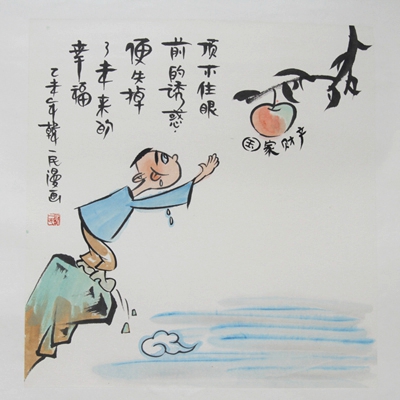 顶不住眼
前的诱惑.
便失掉
了未来的
幸福
乙未年韩一民漫画
国家财产